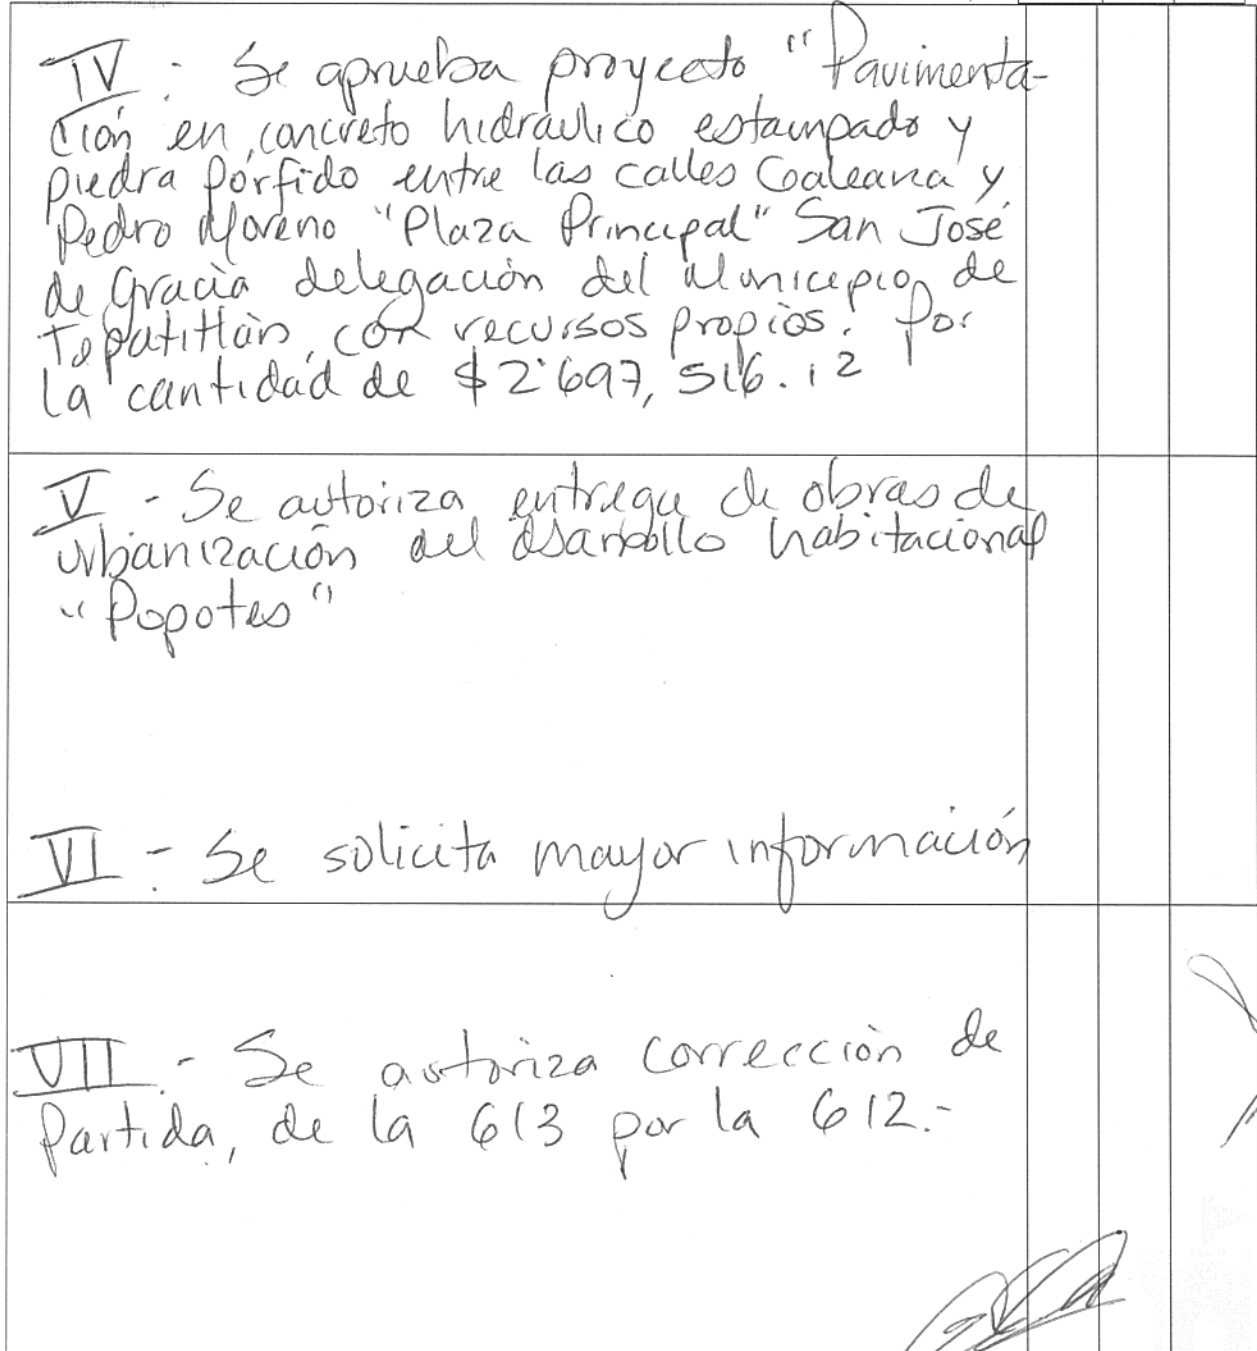 IV.- Se aprueba proyecto "Pavimenta-
ción en concreto hidráulico estampado y
piedra pórfido entre las calles Galeana y
Pedro Moreno "Plaza Principal" San José
de Gracia delegación del Municipio de
Tepatitlán, con recursos propios. Por
la cantidad de $2'697,516.12
V - Se autoriza entrega de obras de
urbanización del desarrollo habitacional
"Popotes"
VI.- Se solicita mayor información
VII.- Se autoriza corrección de
Partida, de la 613 por la 612.-